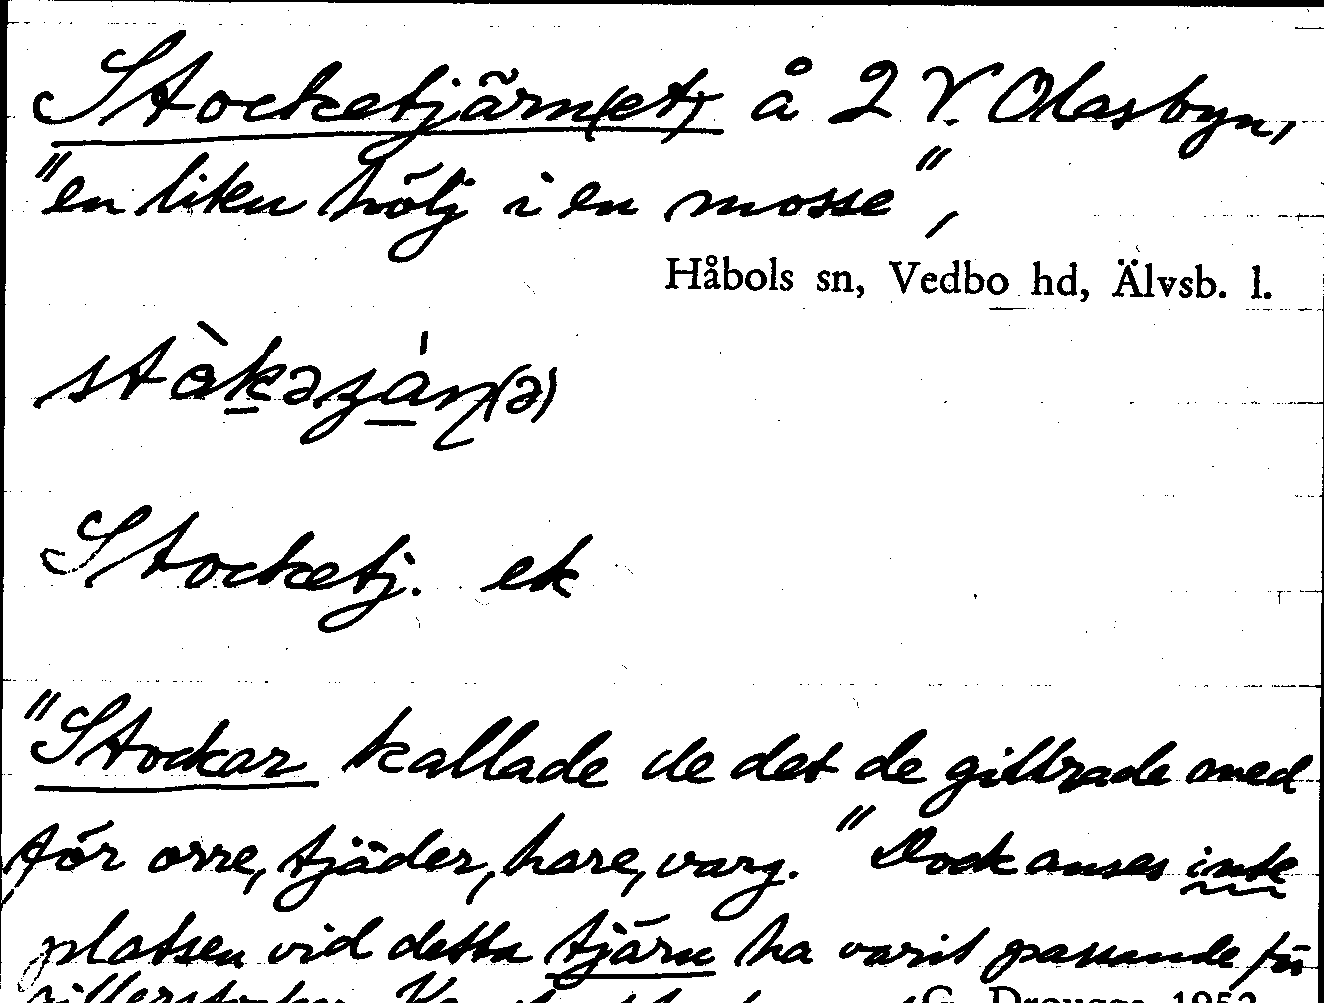 Stocketjärn(et) å 2 V. Olasbyn,
"en liten hölj i en mosse",
Håbols sn, Vedbo hd, Älvsb. l.
Stocketj. ek
"Stockar kallade de det de gillrade med
för orre, tjäder, hare, varg." Dock anses inte
platsen vid detta tjärn ha varit passande för
G. Drougge 1952